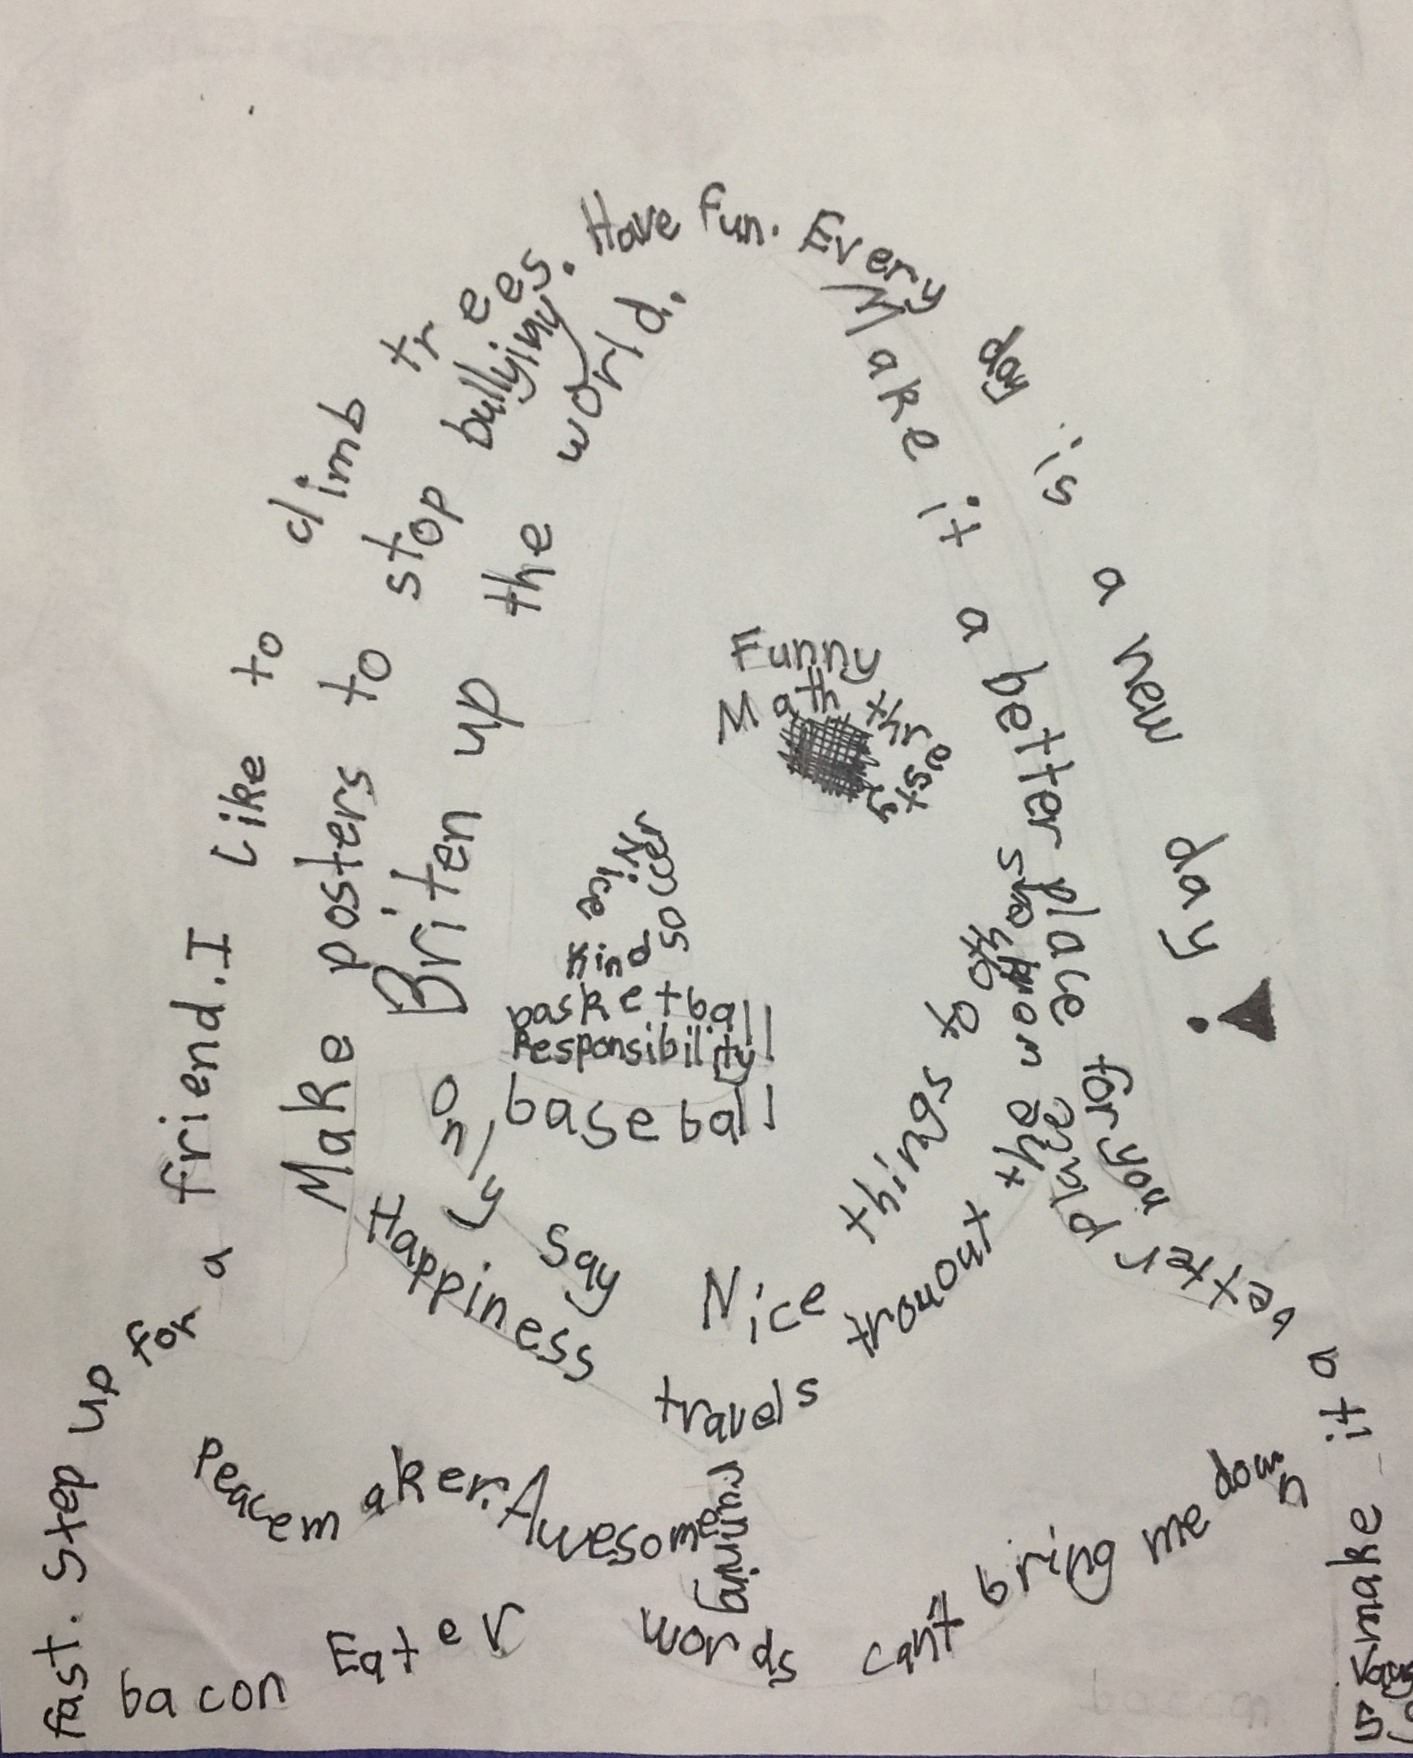 fast. Step up for a friend. I Like to climb trees. Have fun. Every day is a new day.
Make posters to stop bullying
Briten up the world.
Make it a better place for
Funny
Math
Kind
Nice
soccer
basketball
Responsibility
baseball
only say Nice things
Happiness travels trouout the
make it a vetter place
Peacemaker. Awesome
running
bacon Eater
words cant bring me down